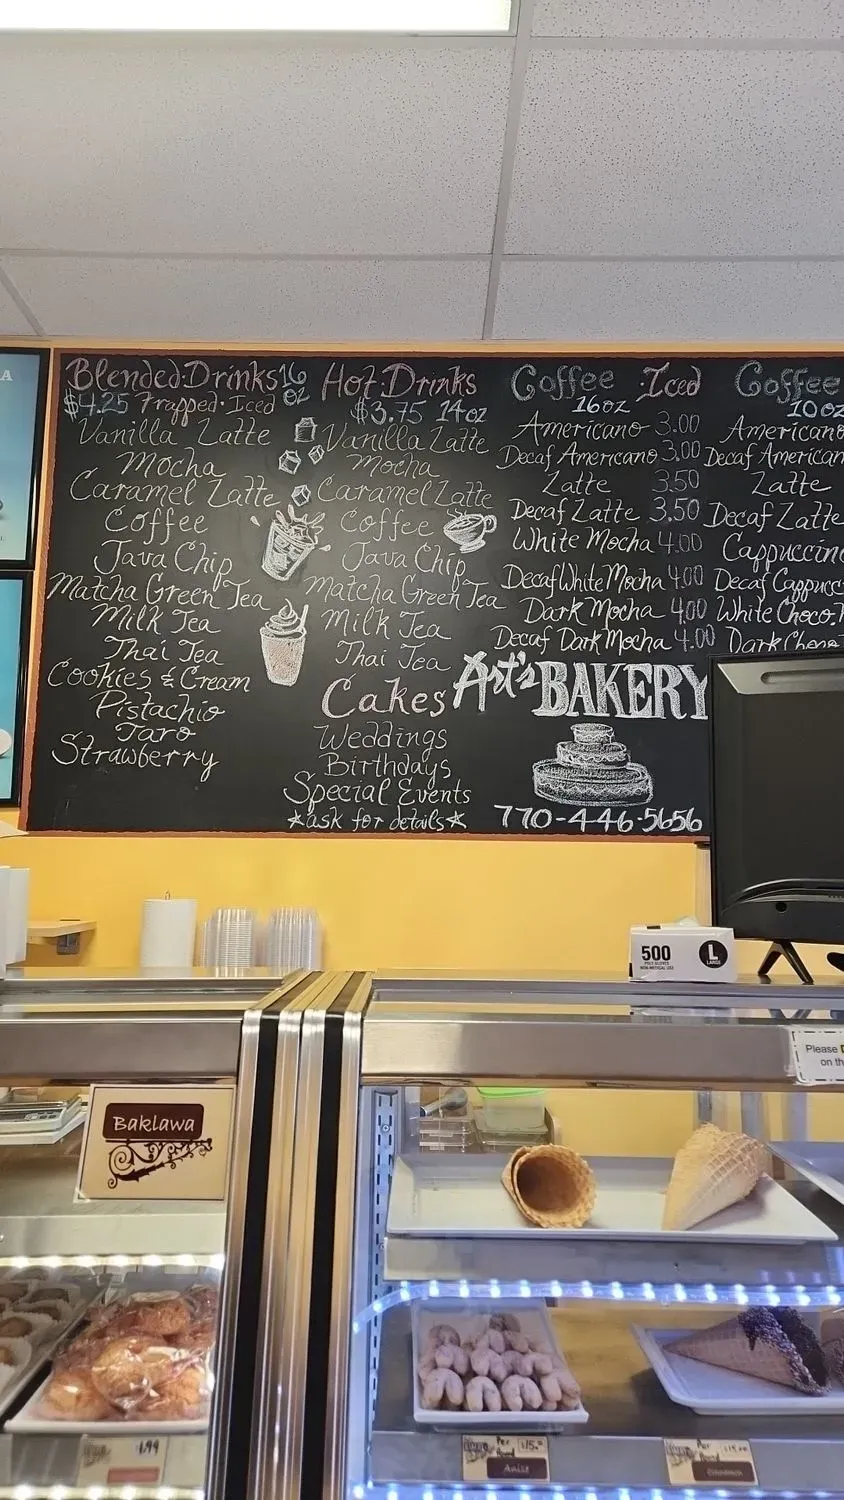 A
Blended·Drinks 16 oz
$4.25 Frapped·Iced
Vanilla Latte
Mocha
Caramel Latte
Coffee
Java Chip
Matcha Green Tea
Milk Tea
Thai Tea
Cookies & Cream
Pistachio
Taro
Strawberry
Hot·Drinks
$3.75 14oz
Vanilla Latte
Mocha
Caramel Latte
Coffee
Java Chip
Matcha Green Tea
Milk Tea
Thai Tea
Cakes
Weddings
Birthdays
Special Events
*ask for details*
Coffee ·Iced
16oz
Americano 3.00
Decaf Americano 3.00
Latte 3.50
Decaf Latte 3.50
White Mocha 4.00
Decaf White Mocha 4.00
Dark Mocha 4.00
Decaf Dark Mocha 4.00
Art's BAKERY
770-446-5656
Coffee
10oz
Americano
Decaf American
Latte
Decaf Latte
Cappuccino
Decaf Cappucc
White Choco.
Dark Choco
500
L
LARGE
Please
on th
Baklawa
1.99
Per Pound $15.00
Anise
Per Pound